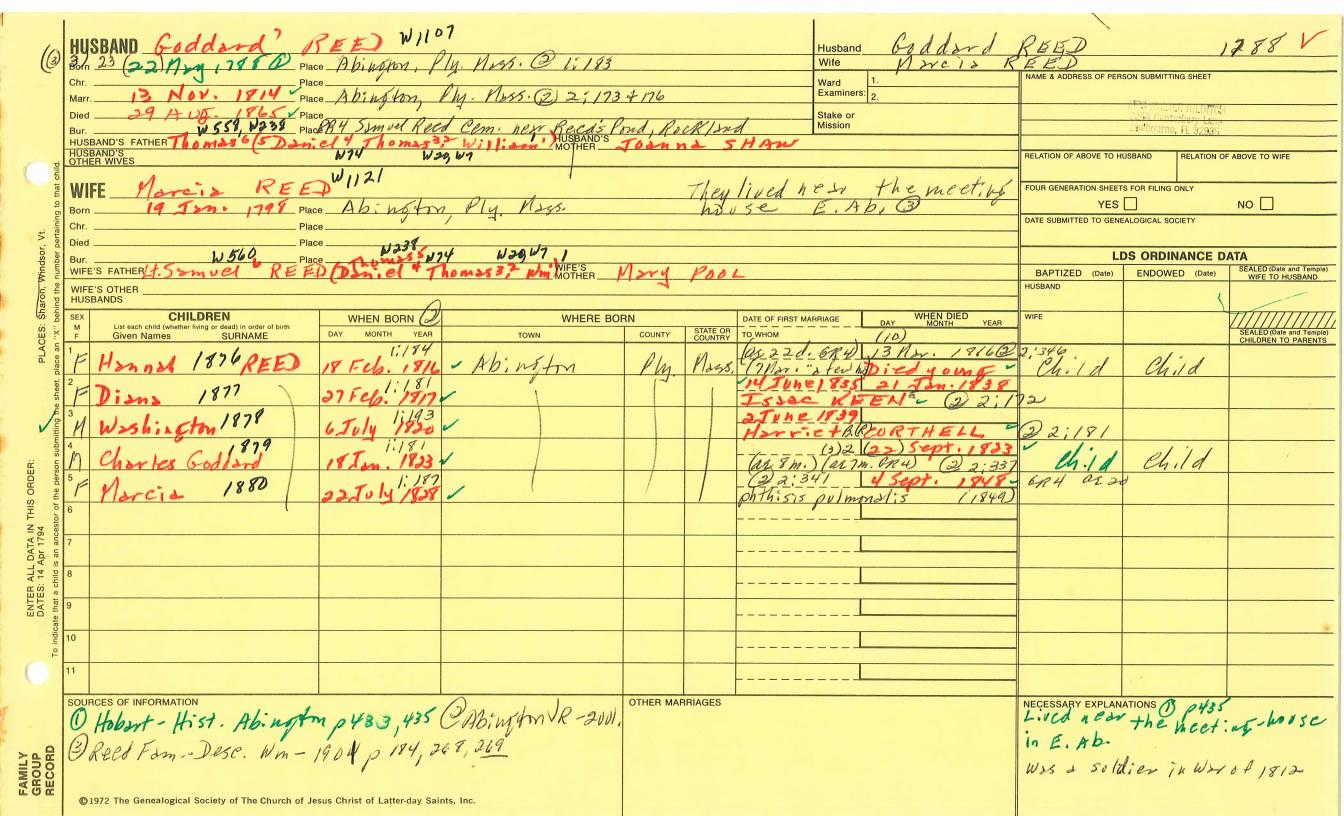 HUSBAND Goddard⁷ REED W1107
Husband Goddard REED 1788 ✓
Wife Marcia REED
(3) 3/23
Born (22) May, 1788 ① Place Abington, Ply. Mass. ② 1:183
Chr. Place
Marr. 13 Nov. 1814 ✓ Place Abington, Ply. Mass. ② 2:173+176
Died 29 Aug. 1865 ✓ Place
Bur. Place GR4 Samuel Reed Cem. near Reed's Pond, Rockland
W559, W238
HUSBAND'S FATHER Thomas⁶ (5 Daniel⁴ Thomas³,² William¹) HUSBAND'S MOTHER Joanna SHAW
W74 W29, W7 1
HUSBAND'S OTHER WIVES
Ward Examiners: 1.
2.
Stake or Mission
NAME & ADDRESS OF PERSON SUBMITTING SHEET
RELATION OF ABOVE TO HUSBAND RELATION OF ABOVE TO WIFE
FOUR GENERATION SHEETS FOR FILING ONLY
YES NO
DATE SUBMITTED TO GENEALOGICAL SOCIETY
WIFE Marcia REED W1121
They lived near the meeting
house E. Ab. ③
Born 19 Jan. 1798 Place Abington, Ply. Mass.
Chr. Place
Died Place
Bur. Place
W560 W238 Thomas⁵ W74 W29, W7 1
WIFE'S FATHER Lt. Samuel⁶ REED (Daniel⁴ Thomas³,² Wm¹) WIFE'S MOTHER Mary POOL
WIFE'S OTHER HUSBANDS
LDS ORDINANCE DATA
BAPTIZED (Date) ENDOWED (Date) SEALED (Date and Temple) WIFE TO HUSBAND
HUSBAND
WIFE
SEALED (Date and Temple) CHILDREN TO PARENTS
SEX M F
CHILDREN
List each child (whether living or dead) in order of birth
Given Names SURNAME
WHEN BORN ②
DAY MONTH YEAR
WHERE BORN
TOWN COUNTY STATE OR COUNTRY
DATE OF FIRST MARRIAGE
TO WHOM
WHEN DIED
DAY MONTH YEAR
(10)
1 F Hannah 1876 REED 1:184 18 Feb. 1816 ✓ Abington Ply. Mass. (as 22d. GR4) 13 Mar. 1816 ② 2:346
(17 Mar. Died young ✓ Child Child
2 F Diana 1877 1:181 27 Feb. 1817 ✓ 14 June 1835 21 Jan. 1838
Isaac KEEN ✓ ② 2:172
3 M Washington 1878 1:193 6 July 1820 ✓ 2 June 1839
Harriet B. CORTHELL ✓ ② 2:181
4 M Charles Goddard 1879 1:181 18 Jan. 1823 ✓ (3)2 (22) Sept. 1823 ✓
(as 8m.) (as 7m. GR4) ② 2:337 Child Child
5 F Marcia 1880 1:187 22 July 1828 ✓ ② 2:341 4 Sept. 1848 ✓ GR4 as 20
phthisis pulmonalis (1849)
6
7
8
9
10
11
SOURCES OF INFORMATION
① Hobart - Hist. Abington p433, 435 ② Abington VR - 2001.
③ Reed Fam.- Desc. Wm - 1901 p 184, 268, 269
OTHER MARRIAGES
NECESSARY EXPLANATIONS ① p435
Lived near the meeting-house
in E. Ab.
was a soldier in War of 1812
©1972 The Genealogical Society of The Church of Jesus Christ of Latter-day Saints, Inc.
FAMILY GROUP RECORD
ENTER ALL DATA IN THIS ORDER:
DATES: 14 Apr 1794
PLACES: Sharon, Windsor, Vt.
To indicate that a child is an ancestor of the person submitting the sheet, place an "X" behind the number pertaining to that child.